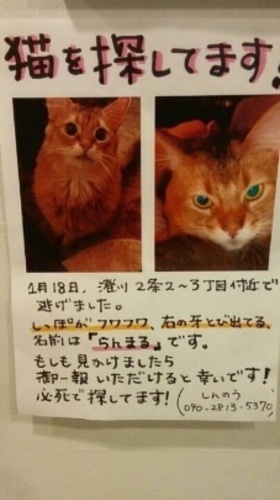 猫を探してます!
1月18日、澄川2条2～3丁目付近で
逃げました。
しっぽがフワフワ、右の牙とび出てる、
名前は「らんまる」です。
もしも見かけましたら
御一報いただけると幸いです!
必死で探してます!(しんのう
090-2813-5370)